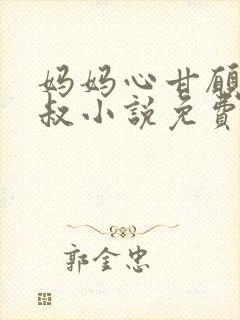 妈妈心甘願
叔小說免費
郭金忠